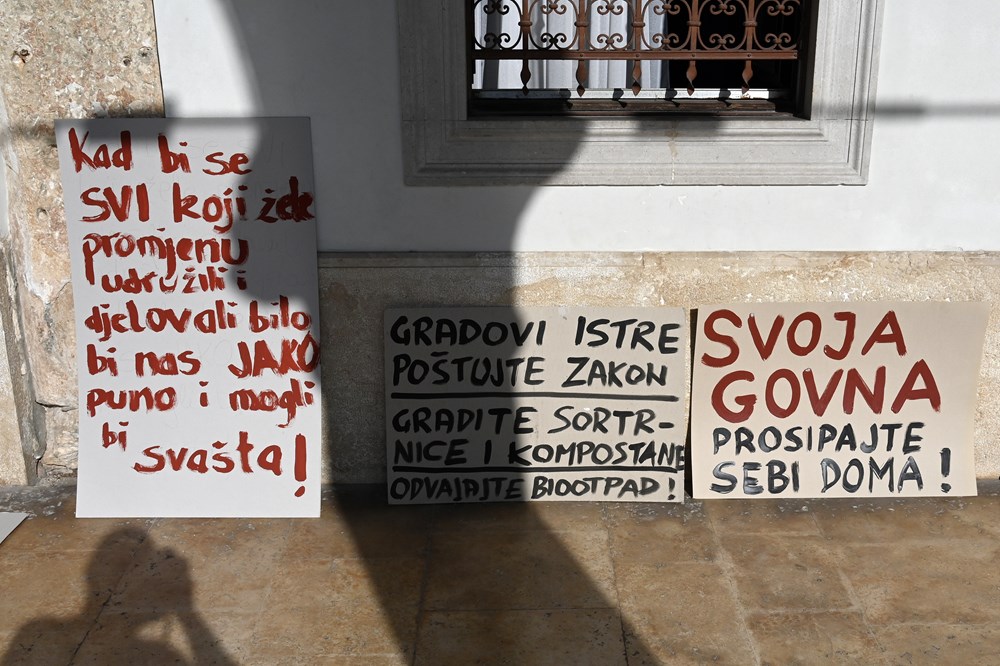 Kad bi se
SVI koji žele
promjenu
udružili i
djelovali bilo
bi nas JAKO
puno i mogli
bi
svašta!
GRADOVI ISTRE
POŠTUJTE ZAKON
GRADITE SORTR-
NICE I KOMPOSTANE
ODVAJAJTE BIOOTPAD!
SVOJA
GOVNA
PROSIPAJTE
SEBI DOMA!